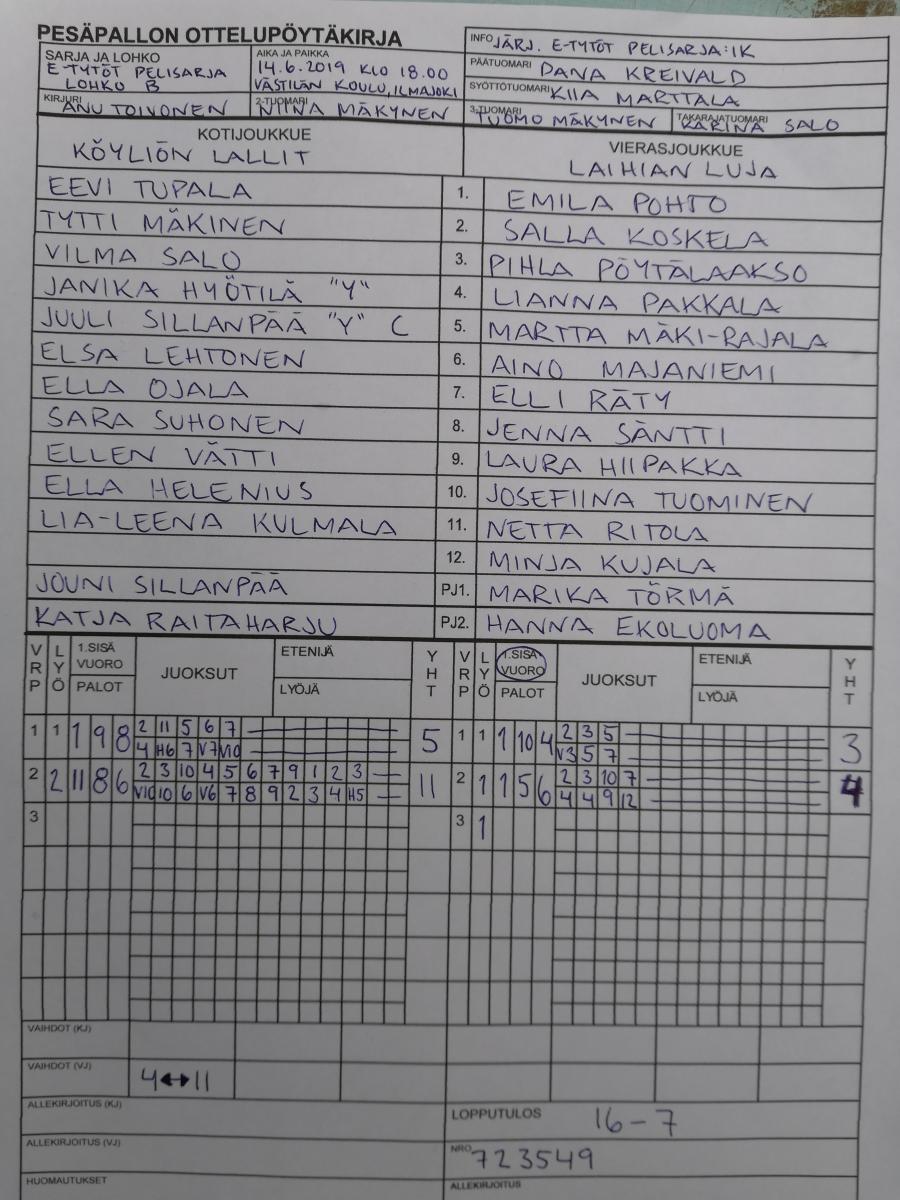 PESÄPALLON OTTELUPÖYTÄKIRJA
SARJA JA LOHKO
E-TYTÖT PELISARJA
LOHKO B
AIKA JA PAIKKA
14.6.2019 KLO 18.00
VÄSTILÄN KOULU, ILMAJOKI
INFO JÄRJ. E-TYTÖT PELISARJA: IK
PÄÄTUOMARI DANA KREIVALD
SYÖTTÖTUOMARI KIIA MARTTALA
KIRJURI ANU TOIVONEN
2-TUOMARI NIINA MÄKYNEN
3-TUOMARI TUOMO MÄKYNEN
TAKARAJATUOMARI KARINA SALO
KOTIJOUKKUE
KÖYLIÖN LALLIT
VIERASJOUKKUE
LAIHIAN LUJA
EEVI TUPALA 1. EMILA POHTO
TYTTI MÄKINEN 2. SALLA KOSKELA
VILMA SALO 3. PIHLA PÖYTÄLAAKSO
JANIKA HYÖTILÄ "Y" 4. LIANNA PAKKALA
JUULI SILLANPÄÄ "Y" C 5. MARTTA MÄKI-RAJALA
ELSA LEHTONEN 6. AINO MAJANIEMI
ELLA OJALA 7. ELLI RÄTY
SARA SUHONEN 8. JENNA SÄNTTI
ELLEN VÄTTI 9. LAURA HIIPAKKA
ELLA HELENIUS 10. JOSEFIINA TUOMINEN
LIA-LEENA KULMALA 11. NETTA RITOLA
12. MINJA KUJALA
JOUNI SILLANPÄÄ PJ1. MARIKA TÖRMÄ
KATJA RAITAHARJU PJ2. HANNA EKOLUOMA
VRP LYÖ 1.SISÄ VUORO PALOT JUOKSUT ETENIJÄ LYÖJÄ YHT VRP LYÖ 1.SISÄ VUORO PALOT JUOKSUT ETENIJÄ LYÖJÄ YHT
1 1 1 9 8 2 11 5 6 7 5 1 1 1 10 4 2 3 5 3
4 H6 7 V7 V10 V3 5 7
2 2 11 8 6 2 3 10 4 5 6 7 9 1 2 3 11 2 1 1 5 6 2 3 10 7 4
V10 10 6 V6 7 8 9 2 3 4 H5 4 4 9 12
3 3 1
VAIHDOT (KJ)
VAIHDOT (VJ) 4↔11
ALLEKIRJOITUS (KJ)
LOPPUTULOS 16-7
ALLEKIRJOITUS (VJ)
NRO 723549
HUOMAUTUKSET
ALLEKIRJOITUS